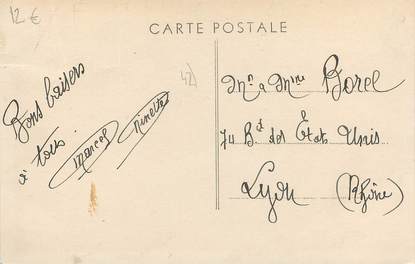 12 €
CARTE POSTALE
42)
Bons baisers
à tous
Marcel
Ninette
Mr & Mme Borel
74 Bd des États Unis
Lyon (Rhône)